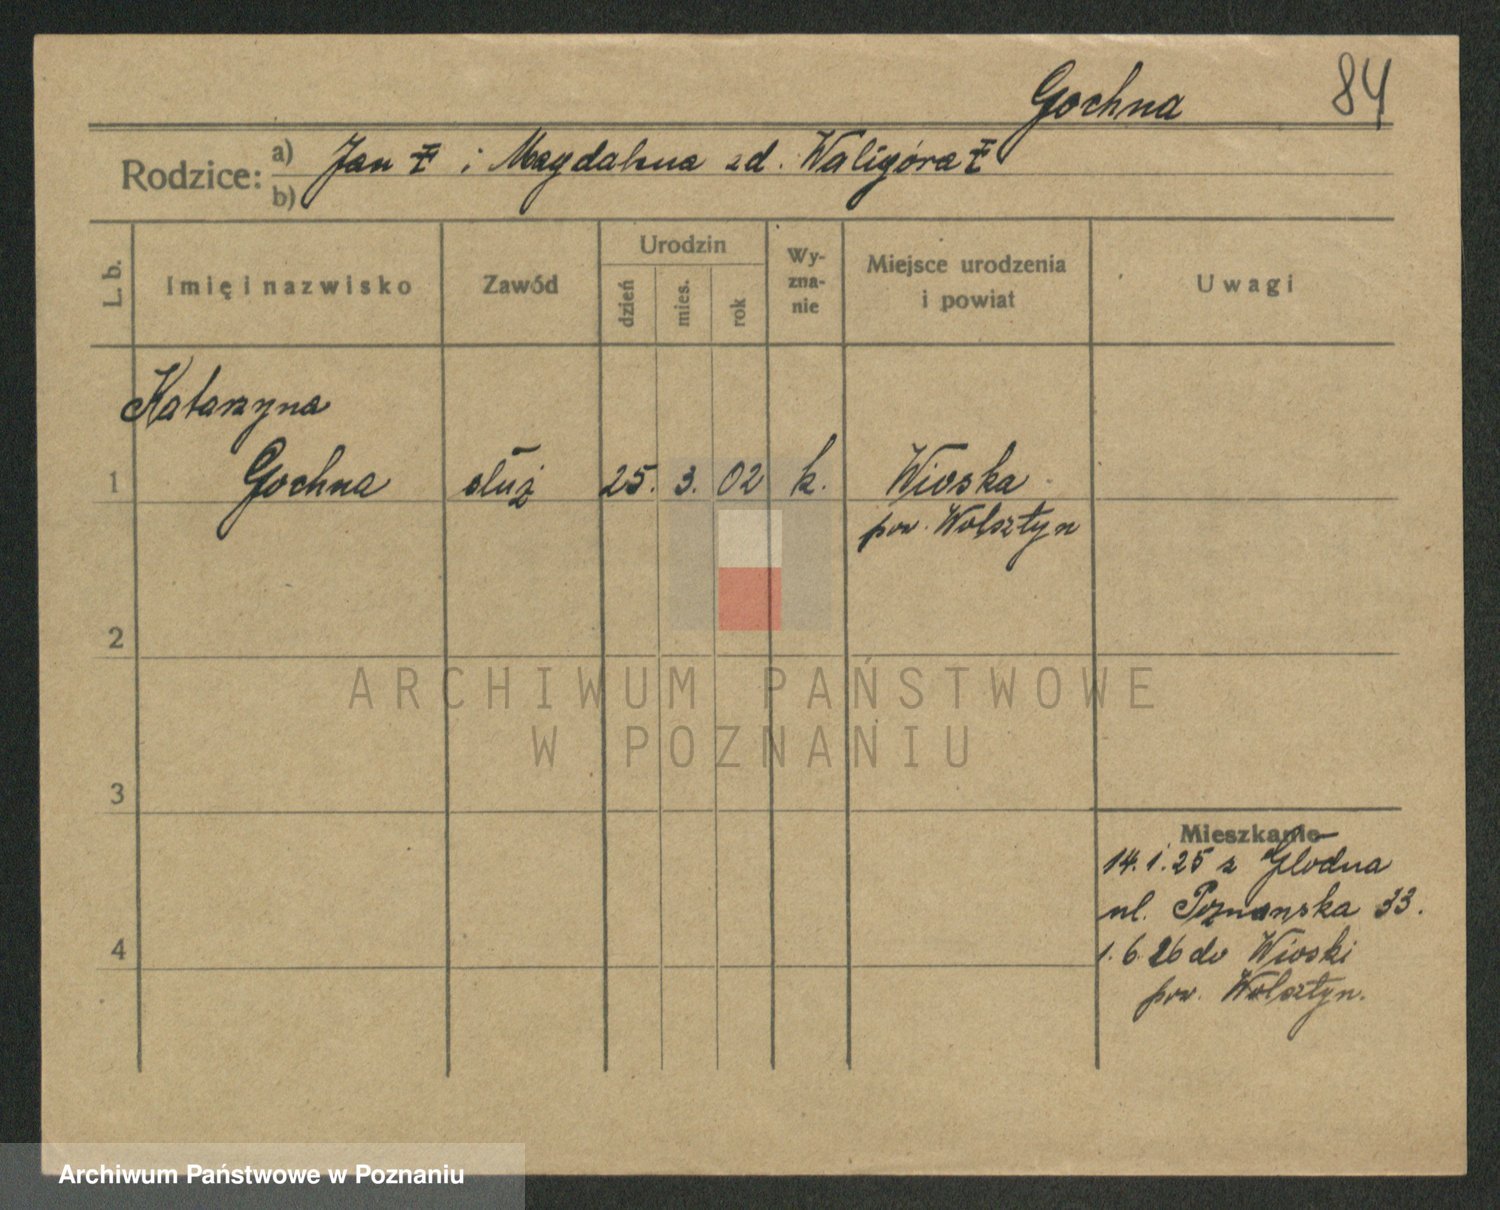 Gochna 84
Rodzice: a) Jan ‡ i Magdalena zd. Waligóra ‡
b)
L. b. Imię i nazwisko Zawód Urodzin dzień mies. rok Wy-zna-nie Miejsce urodzenia i powiat Uwagi
Katarzyna
1 Gochna służ 25. 3. 02 k. Wioska
pow. Wolsztyn
2
ARCHIWUM PAŃSTWOWE
W POZNANIU
3
Mieszkanie
14.1.25 z Głodna
ul. Poznańska 33.
4 1.6.26 do Wioski
pow. Wolsztyn.
Archiwum Państwowe w Poznaniu